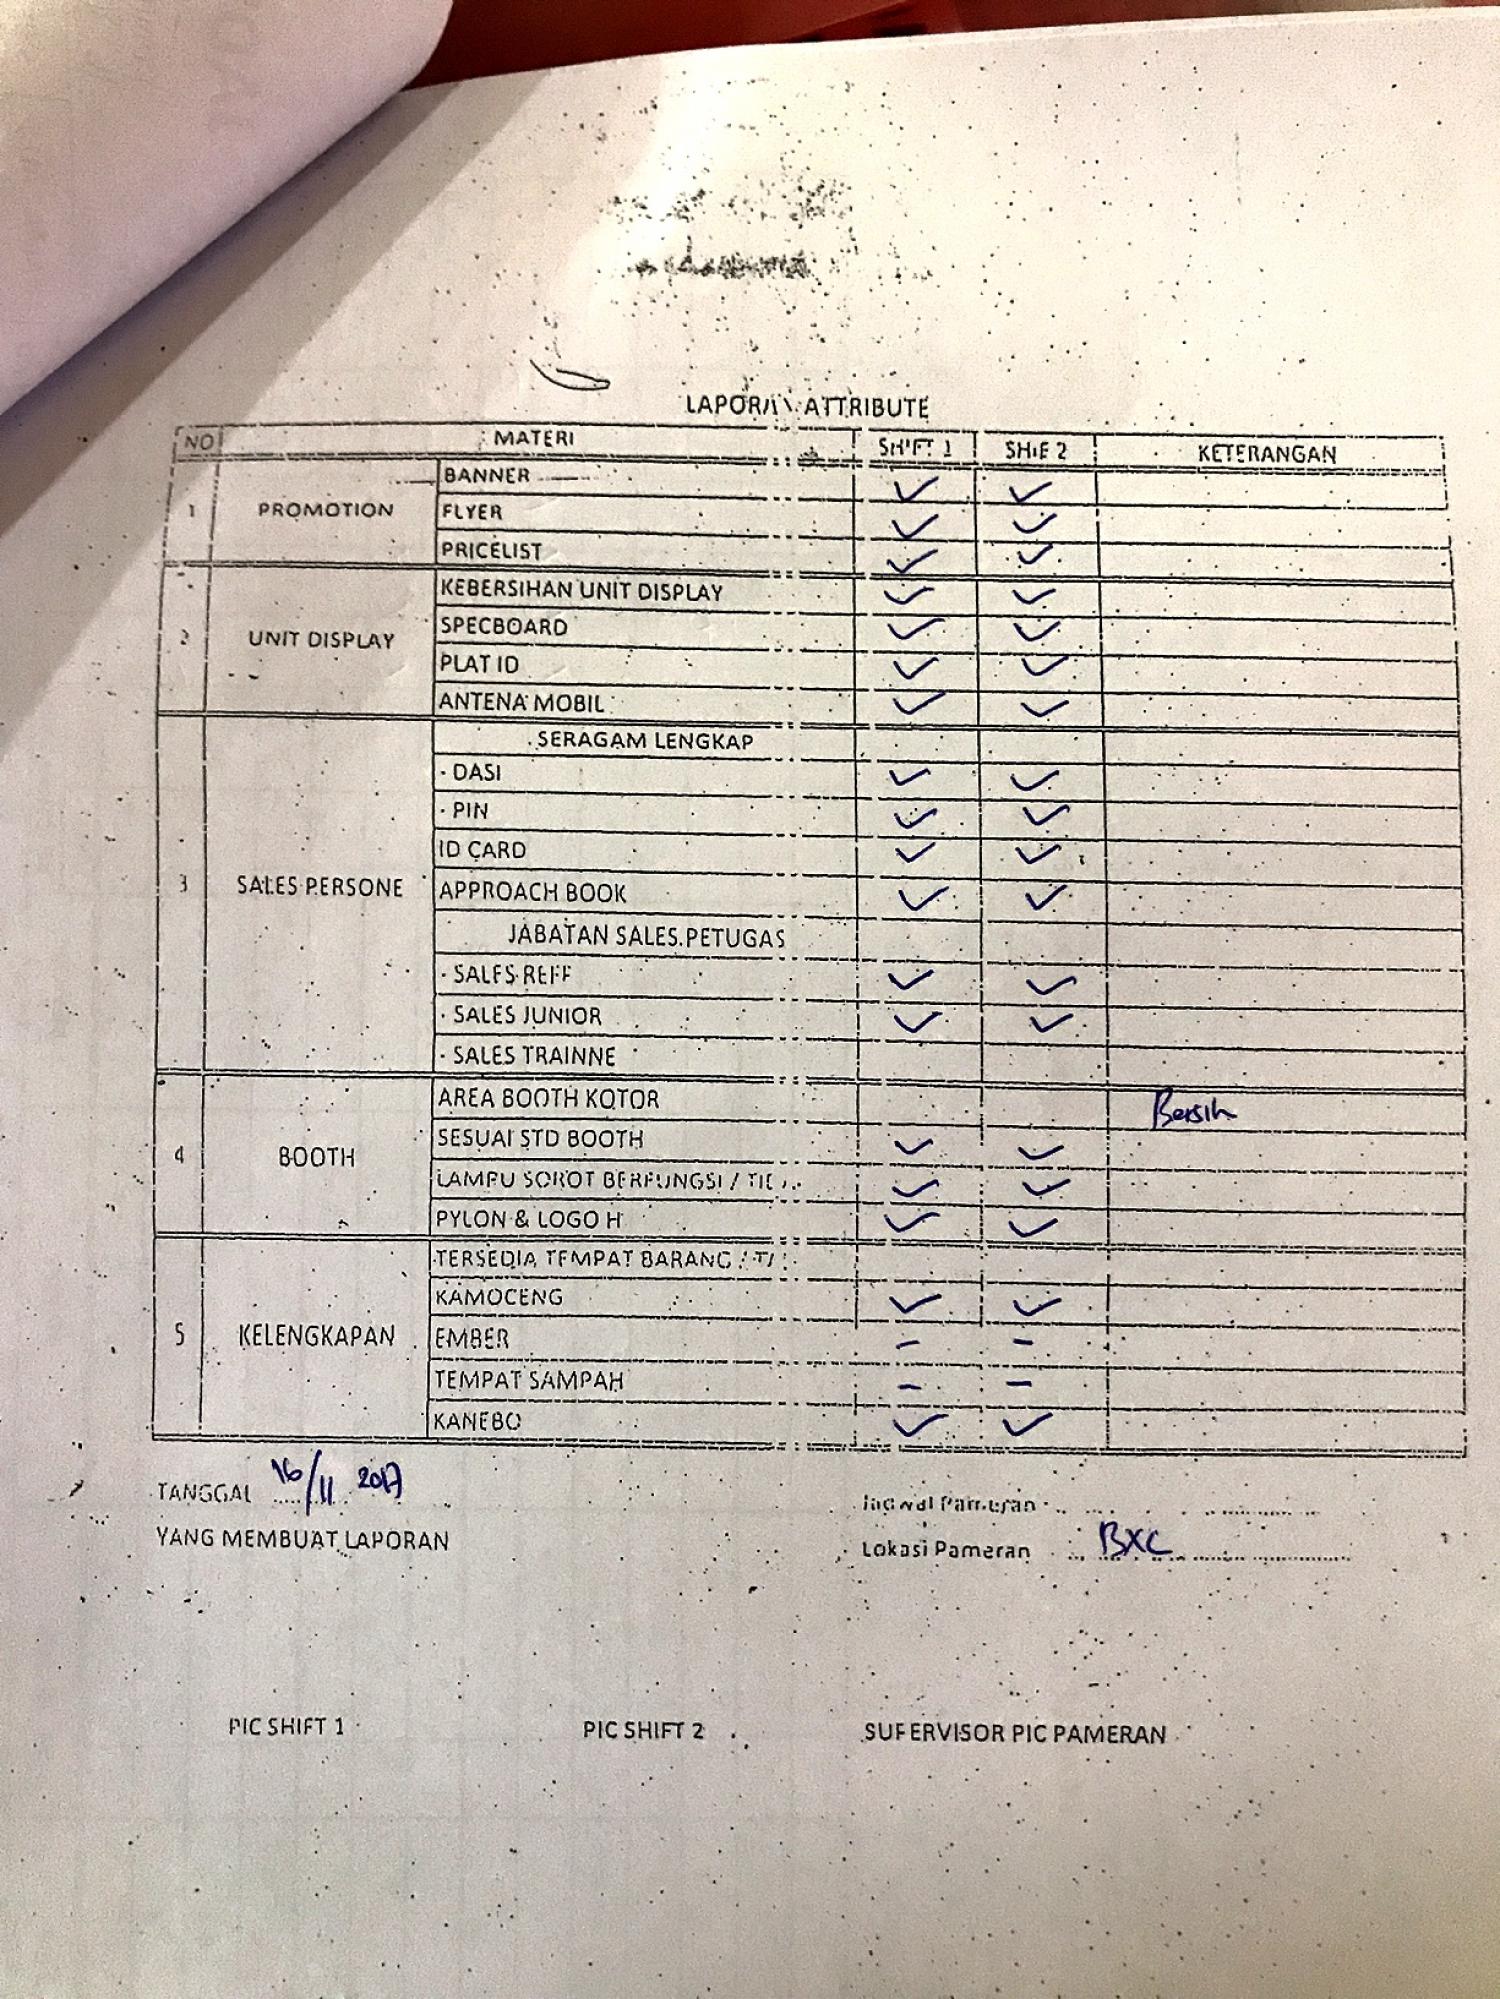 LAPORAN ATTRIBUTE
NO MATERI SHIFT 1 SHIF 2 KETERANGAN
1 PROMOTION BANNER ✓ ✓
FLYER ✓ ✓
PRICELIST ✓ ✓
2 UNIT DISPLAY KEBERSIHAN UNIT DISPLAY ✓ ✓
SPECBOARD ✓ ✓
PLAT ID ✓ ✓
ANTENA MOBIL ✓ ✓
3 SALES PERSONE SERAGAM LENGKAP
- DASI ✓ ✓
- PIN ✓ ✓
ID CARD ✓ ✓
APPROACH BOOK ✓ ✓
JABATAN SALES PETUGAS
- SALES REFF ✓ ✓
- SALES JUNIOR ✓ ✓
- SALES TRAINNE
4 BOOTH AREA BOOTH KOTOR Bersih
SESUAI STD BOOTH ✓ ✓
LAMPU SOROT BERFUNGSI / ✓ ✓
PYLON & LOGO H ✓ ✓
5 KELENGKAPAN TERSEDIA TEMPAT BARANG /
KAMOCENG ✓ ✓
EMBER - -
TEMPAT SAMPAH - -
KANEBO ✓ ✓
TANGGAL 16/11 2017
Jadwal Pameran
YANG MEMBUAT LAPORAN
Lokasi Pameran BXC
PIC SHIFT 1 PIC SHIFT 2 SUPERVISOR PIC PAMERAN